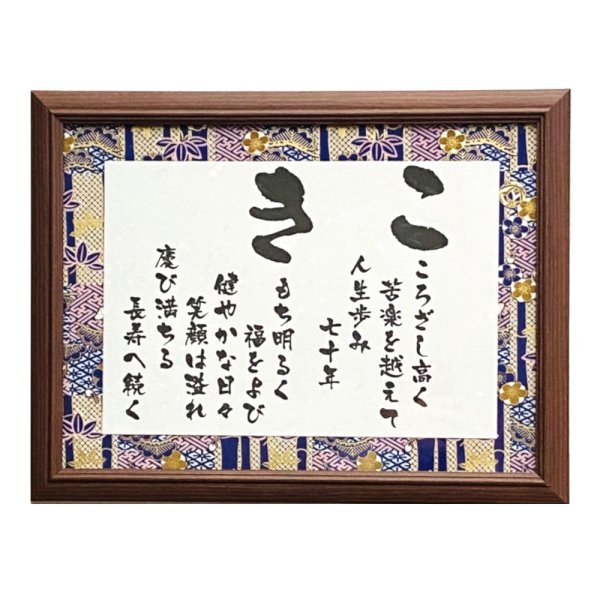 こ
ころざし高く
苦楽を越えて
人生歩み
七十年
き
もち明るく
福をよび
健やかな日々
笑顔は溢れ
慶び満ちる
長寿へ続く